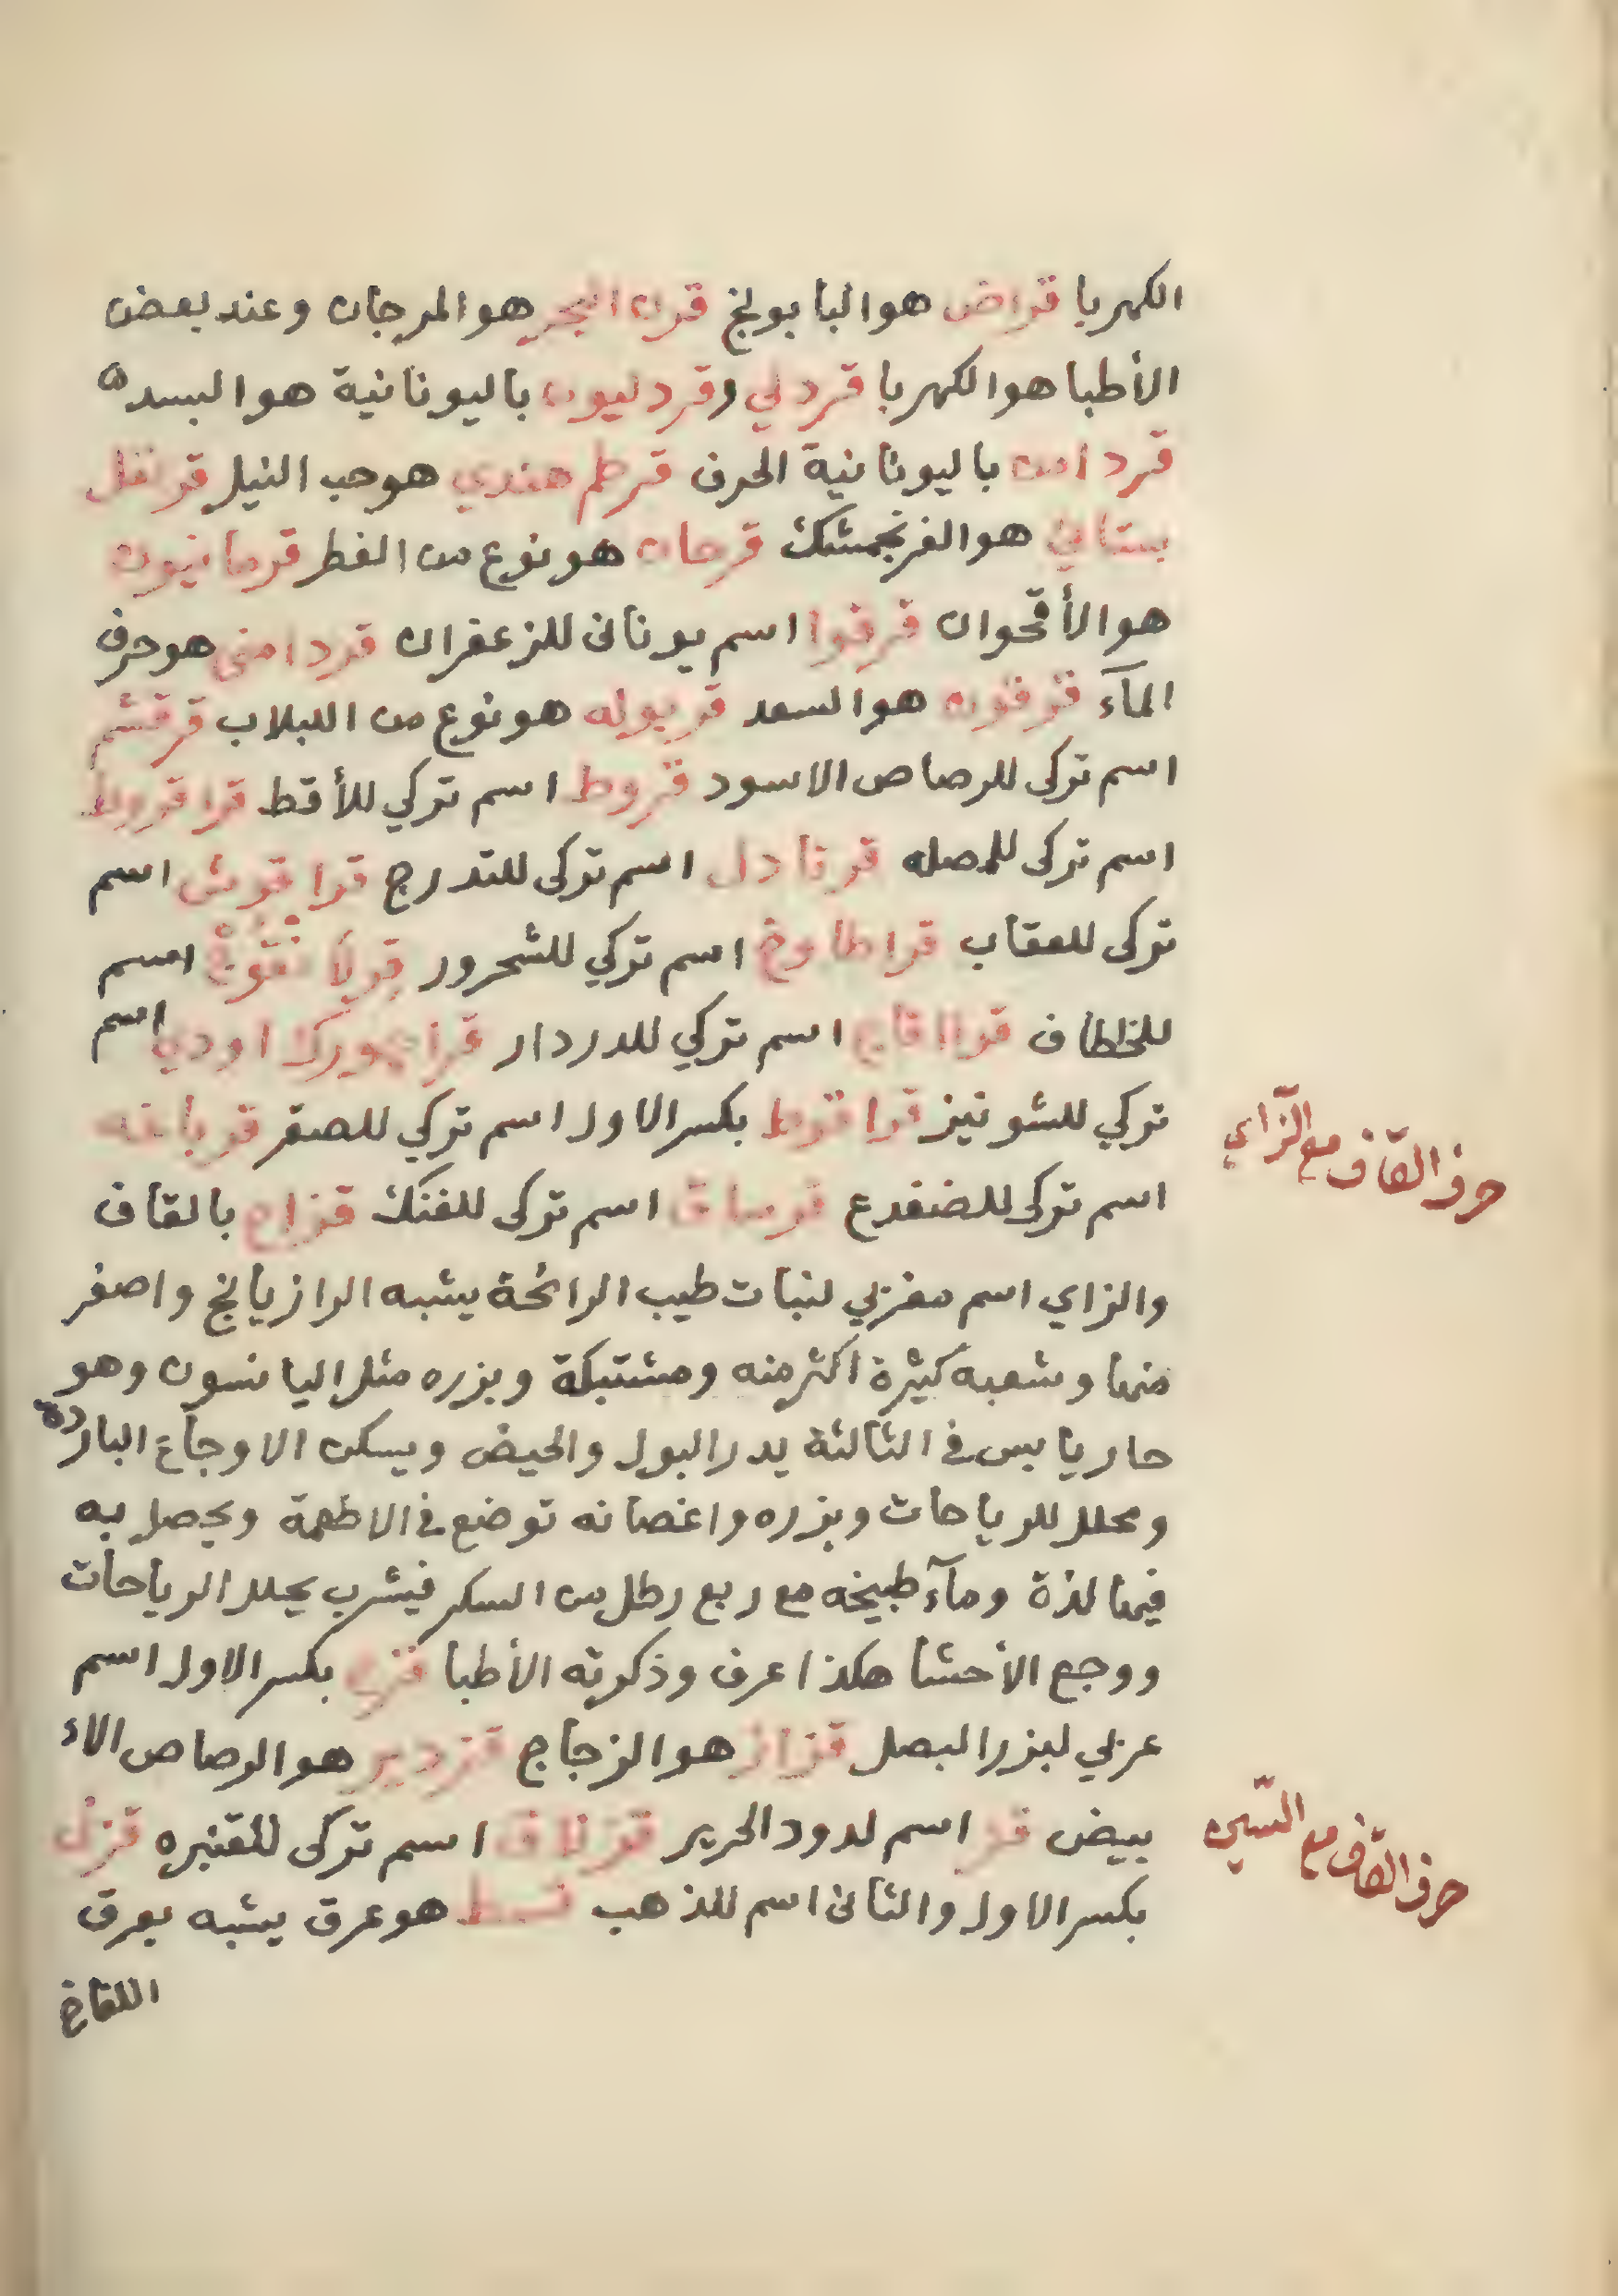 الكهربا قراض هو البابونج قرن البحر هو المرجان وعند بعض
الأطبا هو الكهربا قردلي وقردليون باليونانية هو البسد
قردامن باليونانية الحرف قرطم هندي هو حب النيل قرنفل
بستاني هو الفرنجمشك قرحان هو نوع من الفطر قرمانيون
هو الأقحوان قرفوا اسم يونانى للزعفران قردامنى هو حرف
المآء قرفون هو السعد قربوله هو نوع من اللبلاب قرقشم
اسم تركى للرصاص الاسود قروط اسم تركي للأقط قرا قروط
اسم تركى للمصله قرنادل اسم تركى للتدرج قرا قوش اسم
تركى للعقاب قراطاوخ اسم تركي للشحرور اسم
للخطاف قرااقاج اسم تركي للدردار قراجورك اودي اسم
تركي للشونيز قرا بكسر الاول اسم تركي للصقر قرباغه
اسم تركى للضفدع قرساق اسم تركى للفنك قزاح بالقاف
والزاي اسم مغربي لنبات طيب الرائحة يشبه الرازيانج واصغر
منها وشعبه كثيرة اكثر منه ومشتبكة وبزره مثل اليانسون وهو
حار يابس فى الثالثة يدر البول والحيض ويسكن الاوجاع الباردة
ومحلل للرياحات وبزره واغصانه توضع فى الاطعمة ويحصل به
فيها لذة ومآء طبيخه مع ربع رطل من السكر فيشرب يحلل الرياحات
ووجع الأحشا هكذا عرف وذكرته الأطبا قزح بكسر الاول اسم
عربي لبزر البصل قزاز هو الزجاج قزدير هو الرصاص الا
بيض قز اسم لدود الحرير قزلاق اسم تركى للقنبره قزل
بكسر الاول والثانى اسم للذهب قسط هو عرق يشبه بعرق
اللقاح
حرف القاف مع الزاي
حرف القاف مع السين